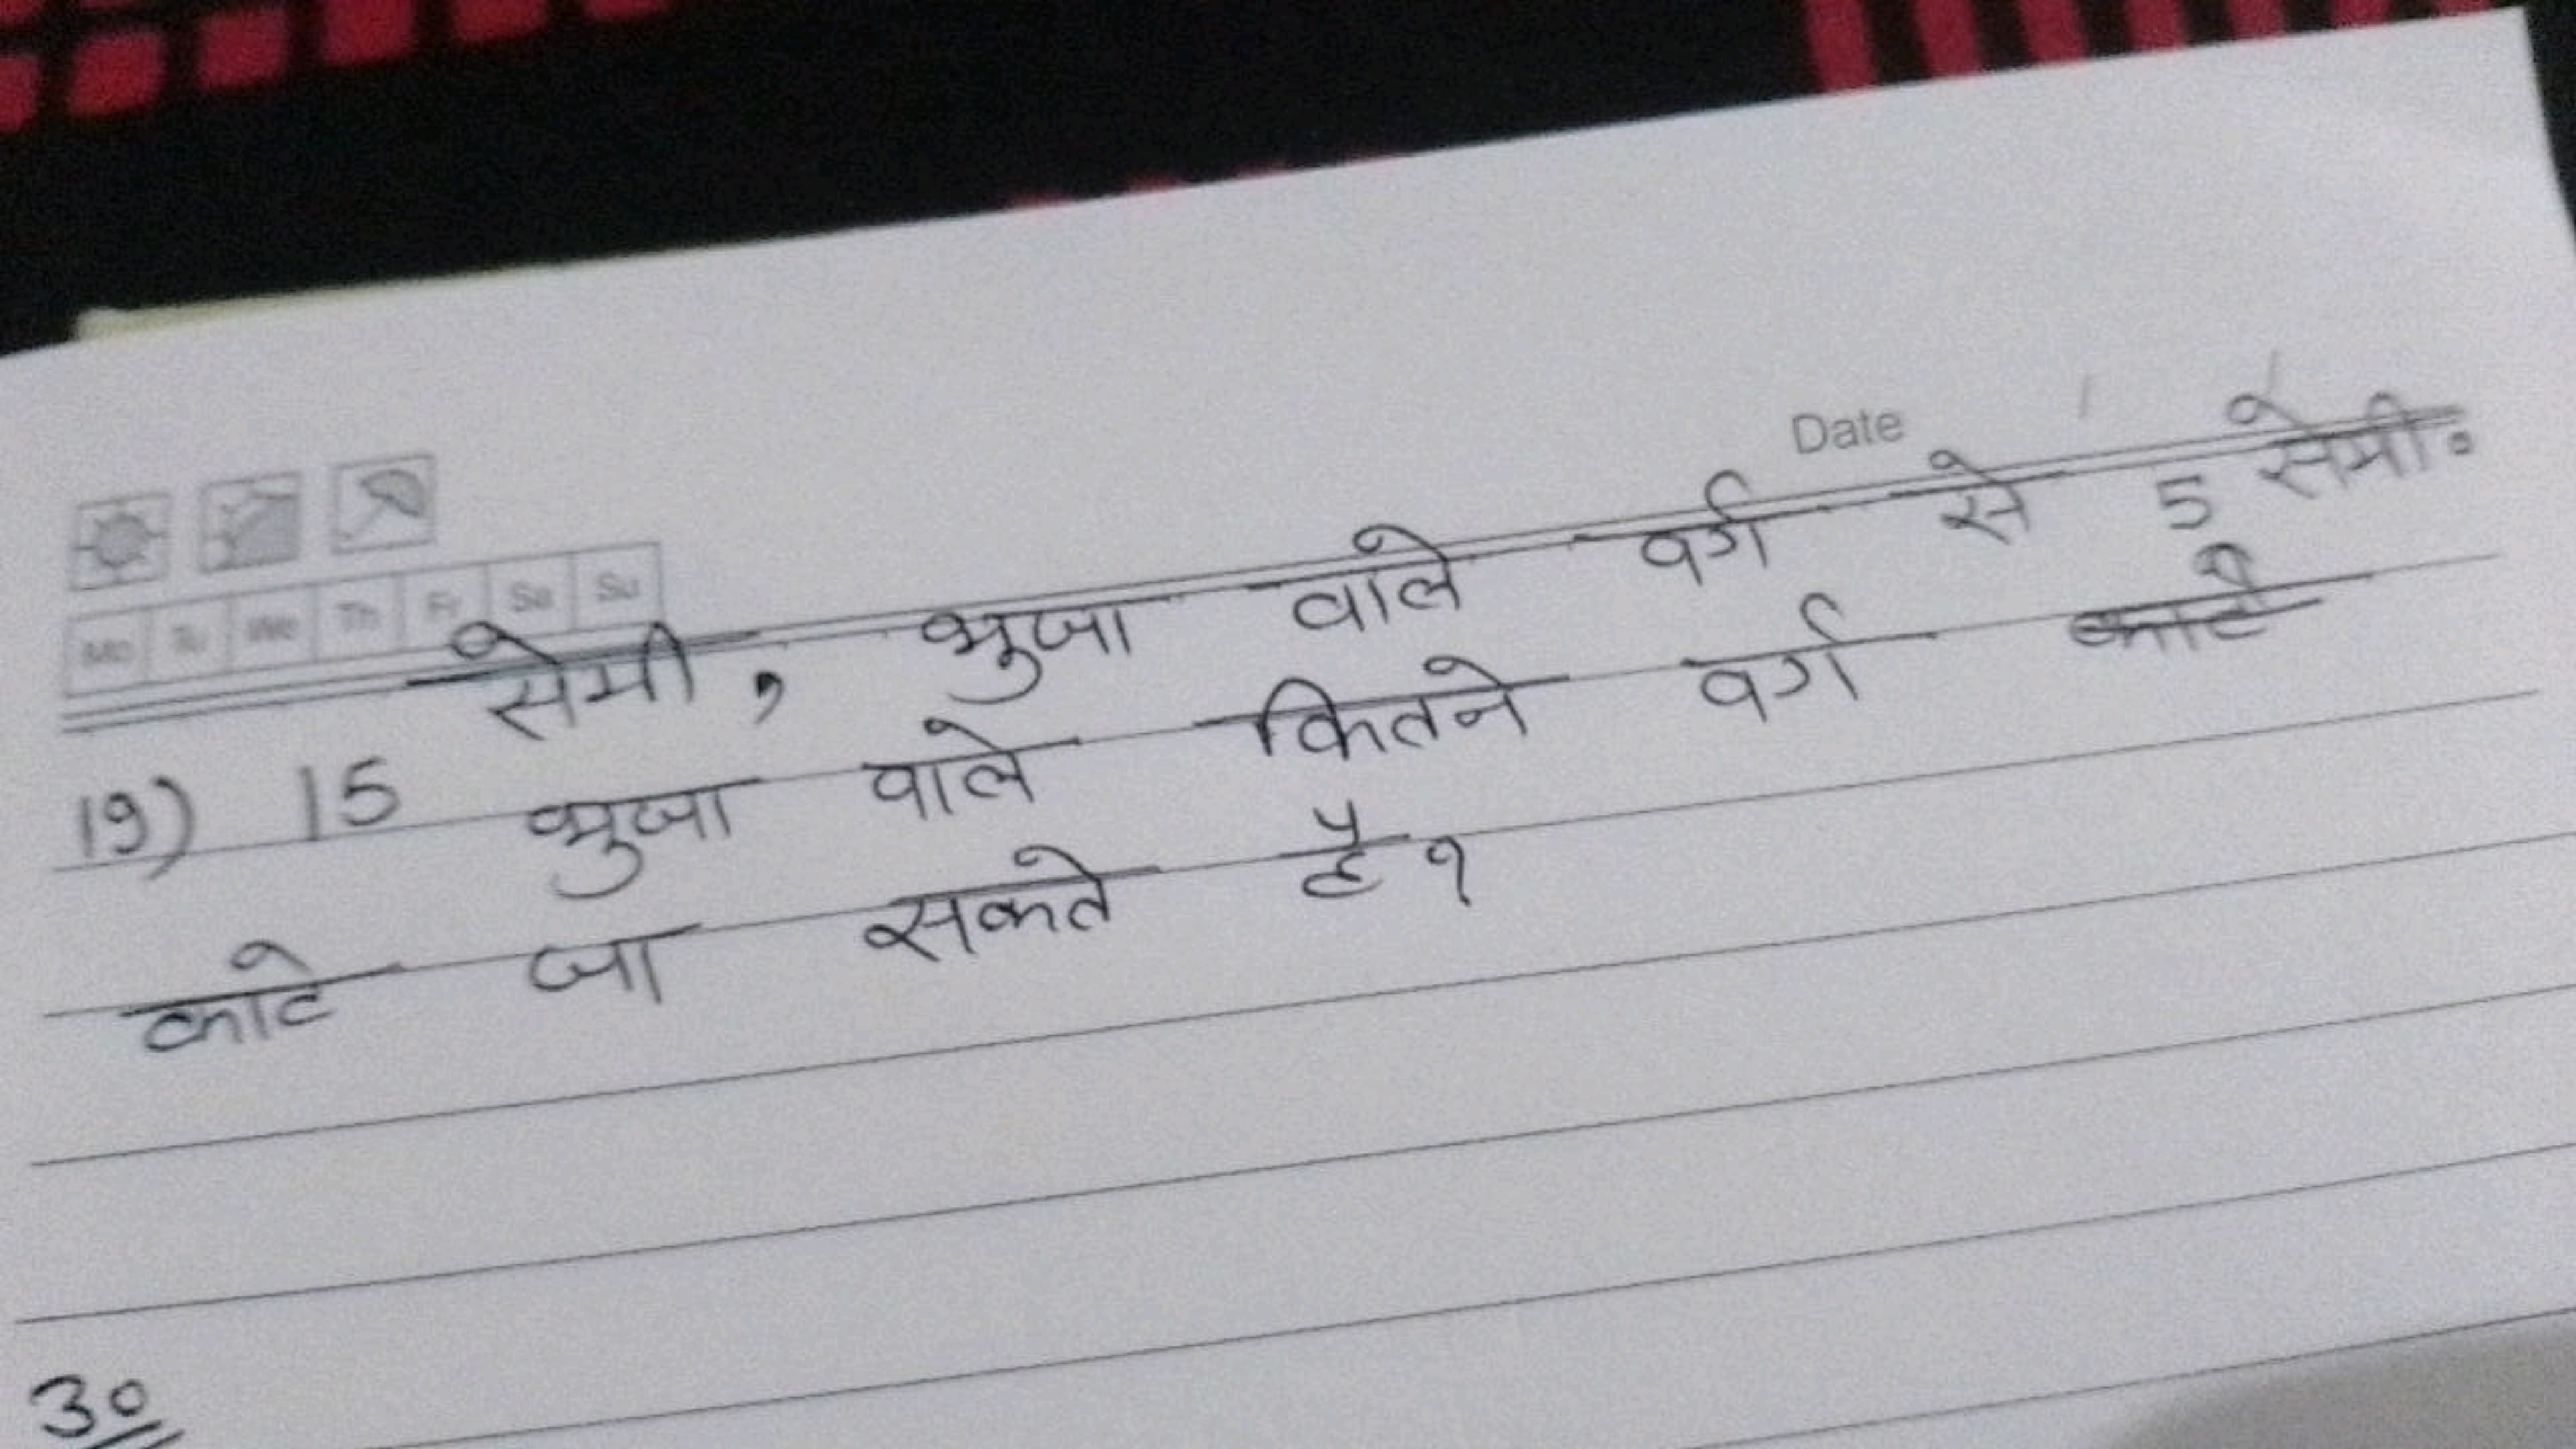 Date / /
Mo Tu We Th Fr Sa Su
19) 15 सेमी, भुजा वाले वर्ग से 5 सेमी॰
भुजा वाले कितने वर्ग काटे
काटे जा सकते है?
उ०